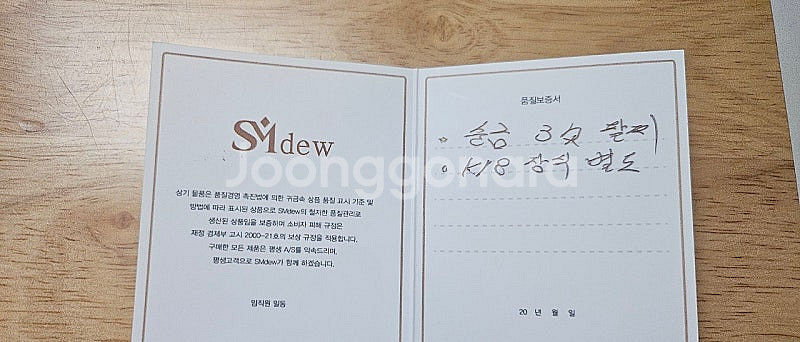 SMdew
상기 물품은 품질경영 촉진법에 의한 귀금속 상품 품질 표시 기준 및
방법에 따라 표시된 상품으로 SMdew의 철저한 품질관리로
생산된 상품임을 보증하며 소비자 피해 규정은
재정 경제부 고시 2000-21호의 보상 규정을 적용합니다.
구매한 모든 제품은 평생 A/S를 약속드리며,
평생고객으로 SMdew가 함께 하겠습니다.
임직원 일동
품질보증서
순금 3돈 팔찌
K18 장식 별도
20 년 월 일
Joonggonara